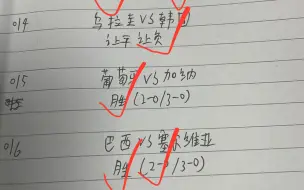 014 乌拉圭VS韩国
让平 让负
015 葡萄牙VS加纳
胜(2-0/3-0)
016 巴西VS塞尔维亚
胜(2-0/3-0)